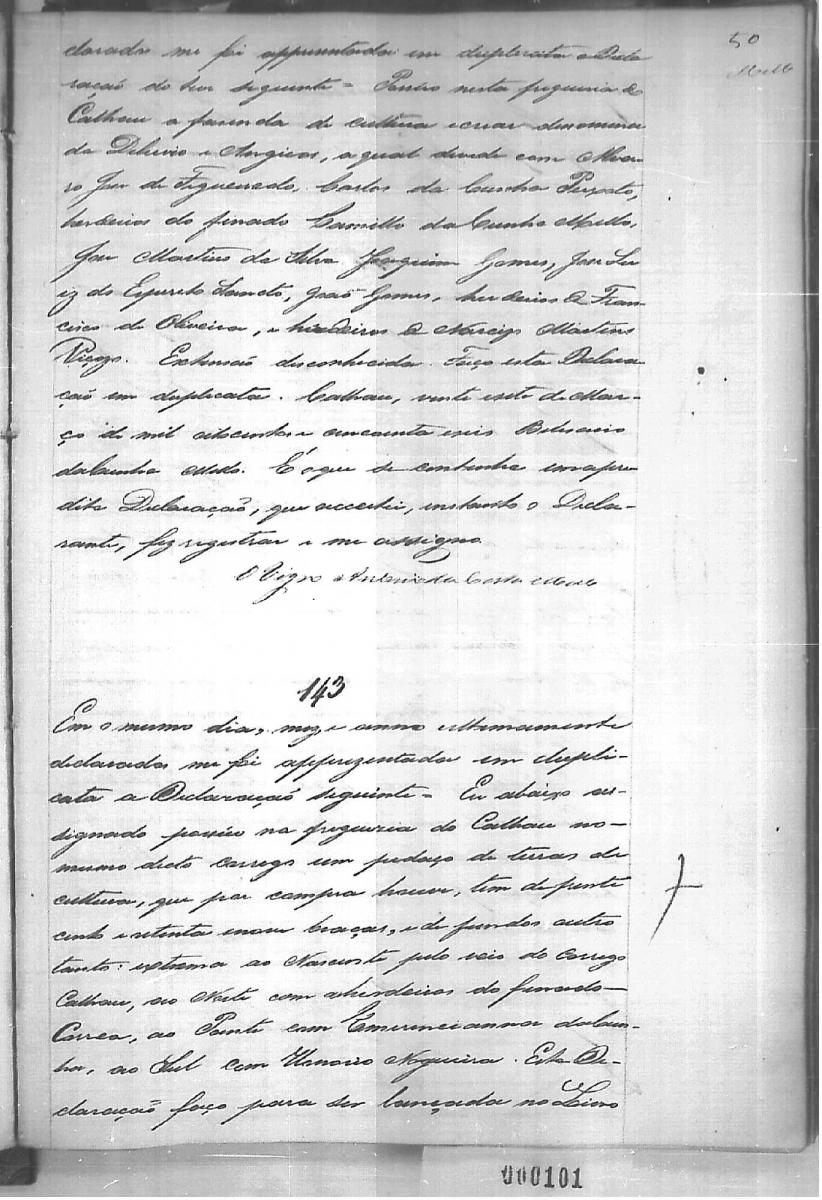 50
Mello
clarados me foi appresentada em duplicata a Decla
ração do teor seguinte = Possuo nesta freguesia de
Calhau a fazenda de cultura e criar denomina
da Diluvio e Angicos, a qual divide com Alva
ro José de Figueiredo, Carlos da Cunha Peixoto,
herdeiros do finado Camillo da Cunha Mello,
José Martins da Silva Joaquim Gomes, José Lu
iz do Espirito Sancto, João Gomes, herdeiros de Fran
cisco de Oliveira, e herdeiros de Narcizo Martins
Viçozo. Extensão desconhecida. Faço esta Declara
ção em duplicata. Calhau, vinte e sete de Mar-
ço de mil oitocentos e cincoenta e seis Belisario
da Cunha Mello. É o que se continha
dita Declaração, que accertei, o Decla-
rante, fiz registrar e me assigno.
O Vigro Antonio da Costa Mello
143
Em o mesmo dia, mez e anno ultimamente
declarados me foi apprezentada em dupli-
cata a Declaração seguinte = Eu abaixo as-
signado possuo na freguezia do Calhau no-
mesmo dicto corrego um pedaço de terras de
cultura, que por compra houve, tem de frente
cento e setenta e nove braças, e de fundos outro
tanto: extrema ao Nascente pelo veio do corrego
Calhau, ao Norte com os herdeiros do finado
Correa, ao Poente com Emerencianna da Cun-
ha, ao Sul com Nogueira. Esta De-
claração faço para ser lançada no Livro
000101